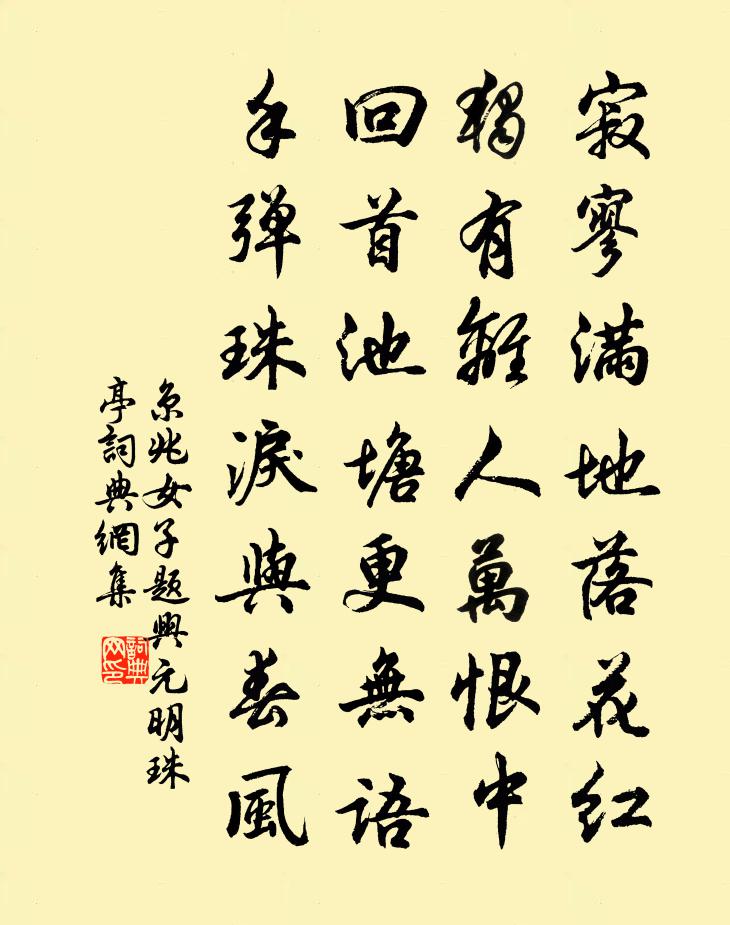 寂寥滿地落花紅
獨有離人萬恨中
回首池塘更無語
手彈珠淚與春風
京兆女子題興元明珠
亭詞典網集
詞典
网印